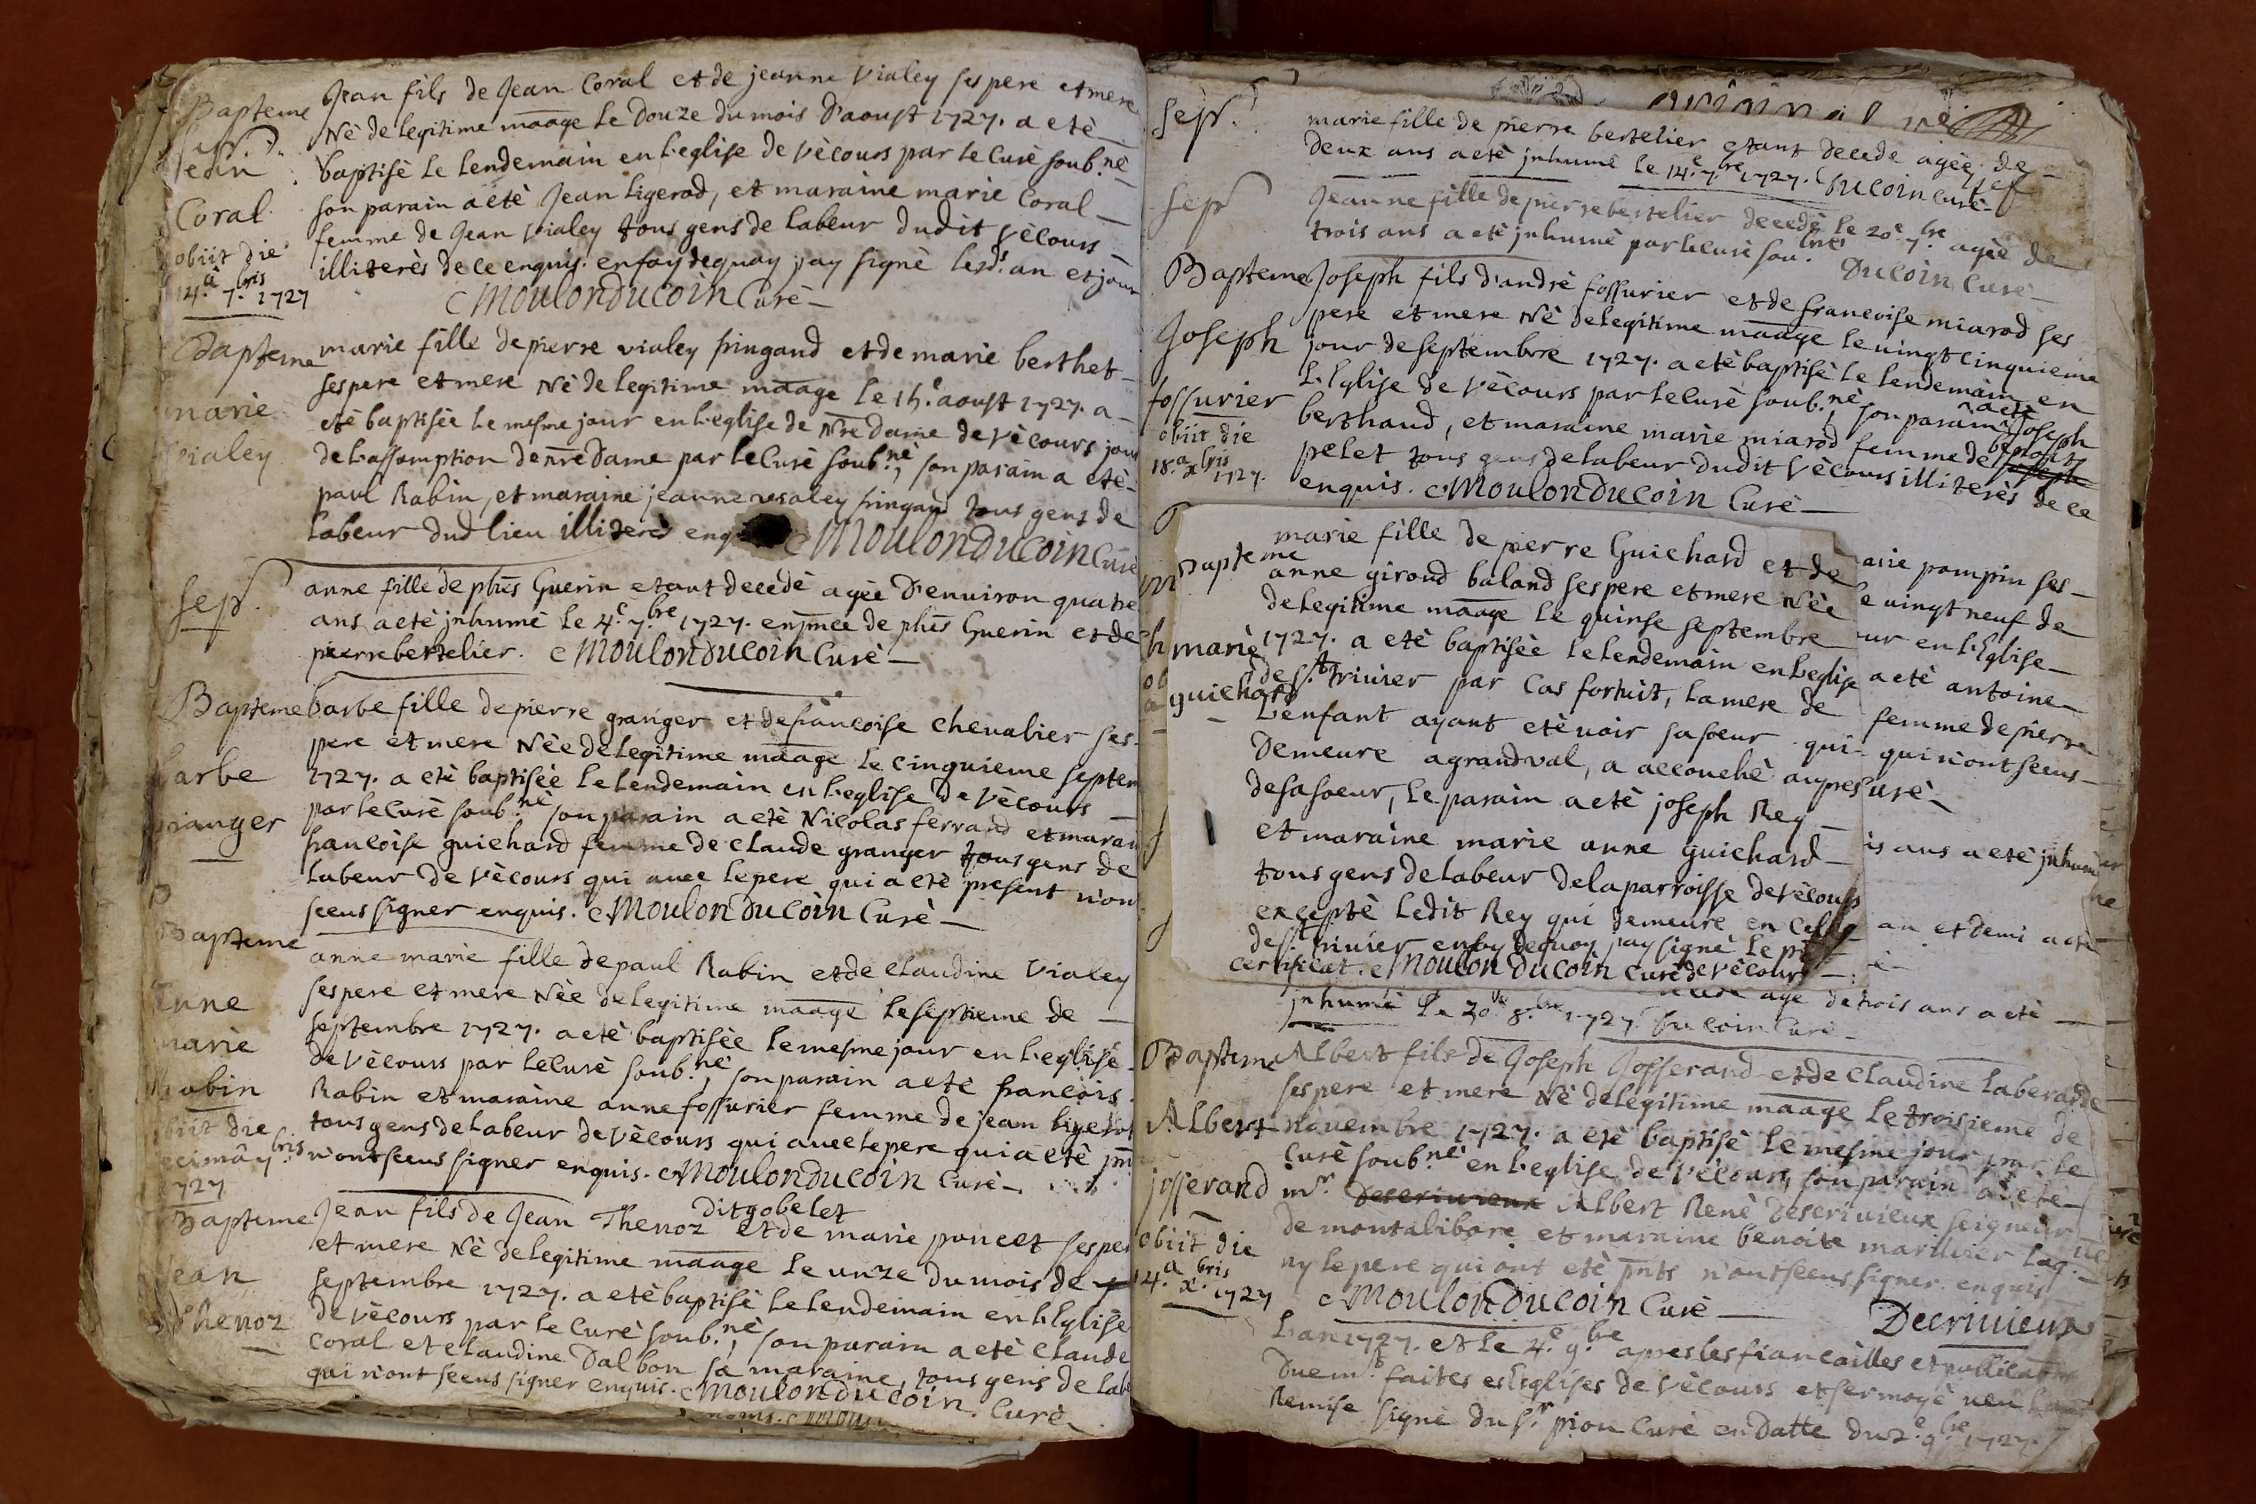 Bapteme
Jean
Coral
obiit die
14.a 7.bris 1727
Jean fils de Jean Coral et de jeanne Vialey ses pere et mere
Nè de legitime maãge Le Douze du mois D'aoust 1727. a etè
baptisè Le Lendemain en L'eglise de Vècours par le Curè soub.nè
son parain a etè Jean Ligerod, et maraine marie Coral
femme de Jean Vialey tous gens de Labeur dudit Vècours
illiterès de ce enquis. en foy de quoy j'ay signè Lesd.s an et jour
Moulon Ducoin Curè
Bapteme
marie
vialey
marie fille de pierre vialey fringand et de marie berthet
ses pere et mere Nè de legitime maãge Le 15.e aoust 1727. a
etè baptisèe Le mesme jour en L'eglise de Nre Dame de Vècours jour
de L'assomption de nre Dame par Le Curè soub.nè, son parain a etè
paul Rabin, et maraine jeanne vialey fringand tous gens de
Labeur dud Lieu illiterès Moulon Ducoin Curè
sep.
anne fille de phès Guerin etant decedè agèe D'environ quatre
ans a etè jnhumè Le 4.e 7.bre 1727. en pñce de phès Guerin et de
pierre bertelier. Moulon Ducoin Curè
Bapteme
barbe
granger
barbe fille de pierre granger et de francoise Chevalier ses
pere et mere Nèe de legitime maãge Le cinquieme septem
1727. a etè baptisèe Le Lendemain en L'eglise de Vècours
par Le Curè soub.nè son parain a etè Nicolas ferrand et marain
francoise guichard femme de Claude granger tous gens de
Labeur de Vècours qui avec Le pere qui a etè present n'ont
sceus signer enquis. Moulon Ducoin Curè
Bapteme
Anne
marie
Rabin
obiit die
1727
anne marie fille de paul Rabin et de Claudine Vialey
ses pere et mere Nèe de legitime maãge Le septieme de
septembre 1727. a etè baptisèe Le mesme jour en L'eglise
de Vècours par Le Curè soub.nè, son parain a etè francois
Rabin et maraine anne fossurier femme de jean Ligerod
tous gens de Labeur de Vècours qui avec Le pere qui a etè pñt
n'ont sceus signer enquis. Moulon Ducoin Curè
Bapteme
Jean
Thenoz
dit gobelet
Jean fils de Jean Thenoz et de marie poncet ses per
et mere Nè de legitime maãge Le unze du mois de
septembre 1727. a etè baptisè Le Lendemain en L'Eglise
de Vècours par Le Curè soub.nè, son parain a etè Claude
Coral et Claudine Dalbon sa maraine, tous gens de Lab
qui n'ont sceus signer enquis. Moulon Ducoin. Curè
sep.
marie fille de pierre bertelier etant decedè agèe de
Deux ans a etè jnhumè Le 14.e 7.bre 1727. Ducoin Curè
sep
Jeanne fille de pierre bertelier decedè Le 20.e 7.bre agèe de
trois ans a etè jnhumè par Le Curè sou.
Ducoin Curè
Bapteme
Joseph
fossurier
obiit die
18.a x.bris
1727.
Joseph fils d'andrè fossurier et de francoise miarod ses
pere et mere Nè de legitime maãge Le vingt cinquieme
jour de septembre 1727. a etè baptisè Le Lendemain en
L'Eglise de Vècours par Le Curè soub.nè, son parain a etè Joseph
berthaud, et maraine marie miarod femme de benoit
pelet tous gens de Labeur dudit Vècours illiterès de ce
enquis. Moulon Ducoin Curè
Bapteme
marie
guichard
marie fille de pierre Guichard et de
anne giroud baland ses pere et mere Nèe
de legitime maãge Le quinse septembre
1727. a etè baptisèe Le Lendemain en L'eglise
de s.t trivier par Cas fortuit, La mere de
L'enfant ayant etè voir sa soeur qui
Demeure a grandval, a accouchè aupres
de sa soeur, Le parain a etè joseph Rey
et maraine marie anne guichard
tous gens de Labeur de La parroisse de Vècours
exceptè Ledit Rey qui demeure en Celle
de s.t trivier en foy de quoy j'ay signè Le pñt
certificat. Moulon Ducoin Curè de Vècours
arie pompin ses
e vingt neuf de
ur en L'Eglise
a etè antoine
femme de pierre
qui n'ont sceus
urè
is ans a etè jnhumè
an et demi a etè
agè de trois ans a etè
jnhumè Le 30.e 8.bre 1727. Ducoin Curè
Bapteme
Albert
josserand
obiit die
14.a x.bris 1727
Albert fils de Joseph Josserand et de Claudine Laberarde
ses pere et mere Nè de legitime maãge Le troisieme de
Novembre 1727. a etè baptisè Le mesme jour par Le
Curè soub.nè en L'eglise de Vècours, son parain a etè
m.r Descrivieux Albert Renè Descrivieux seigneur
de montalibore et maraine benoite
ny Le pere qui ont etè pñts n'ont sceus signer enquis
Moulon Ducoin Curè
Decrivieux
L'an 1727. et Le 4.e 9.bre apres Les fiancailles et publications
Duem.t faites es Eglises de Vècours et sermoyè veu La
Remise signè du s.r pion Curè en Datte du 2.e 9.bre 1727.